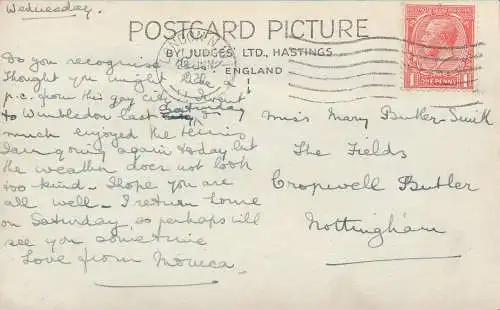 Wednesday.
POSTCARD PICTURE
BY JUDGES' LTD., HASTINGS,
ENGLAND
ONE PENNY
Do you recognise this?
Thought you might like a
p.c. from this gay city. I went
to Wimbledon last Saturday &
much enjoyed the tennis
I am going again today but
the weather does not look
too kind. I hope you are
all well. I return home
on Saturday, so perhaps will
see you sometime
Love from Monica.
Miss Mary Butler-Smith
The Fields
Cropwell Butler
Nottingham